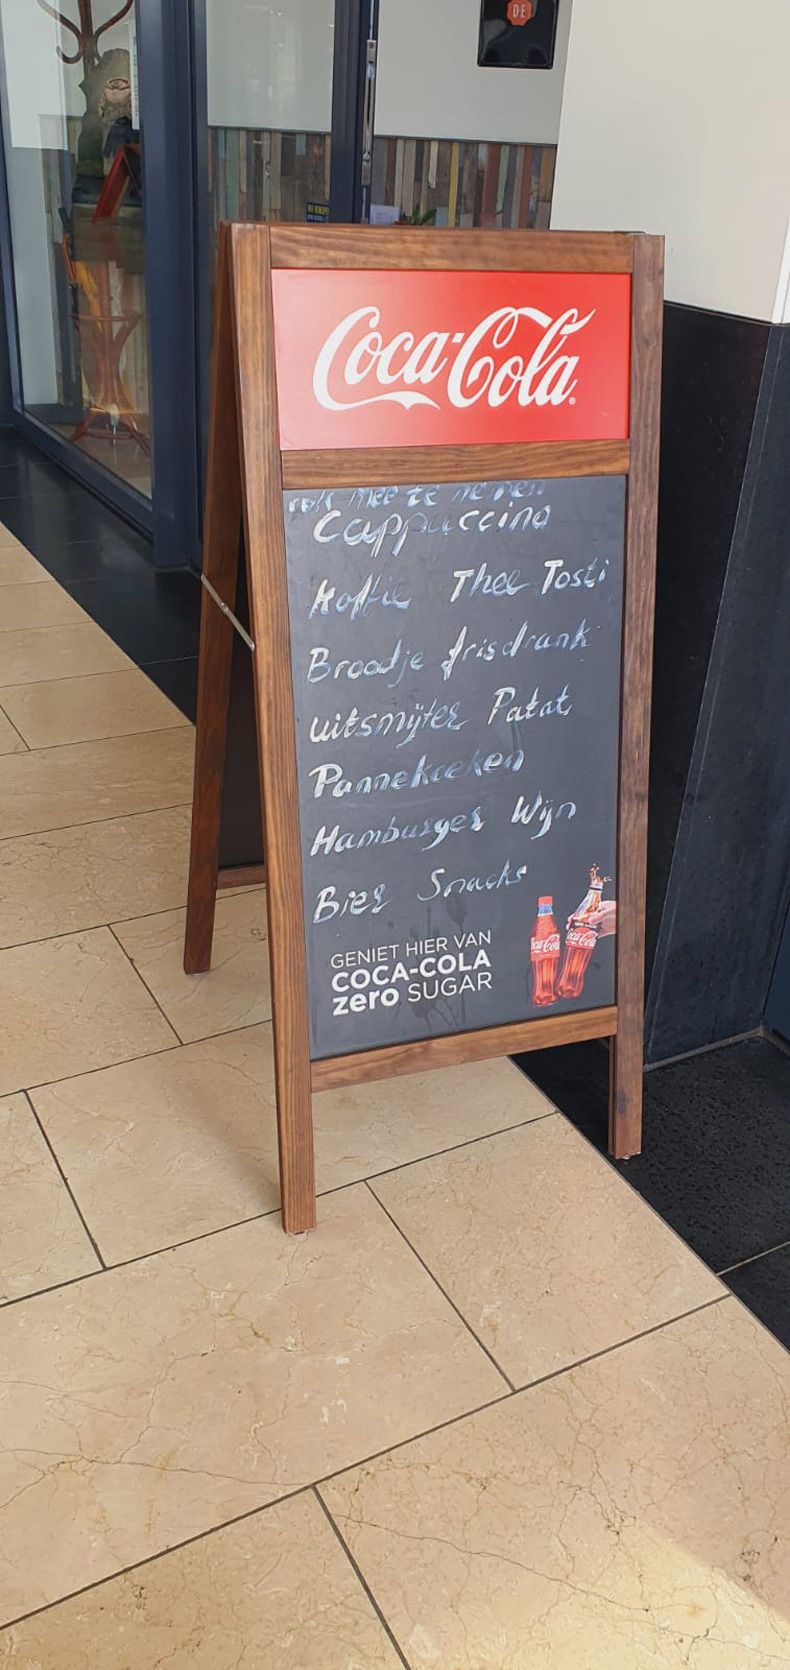 DE
Coca-Cola
ook mee te nemen
Cappuccino
Koffie Thee Tosti
Broodje frisdrank
uitsmijter Patat
Pannekoeken
Hamburger Wijn
Bier Snacks
GENIET HIER VAN
COCA-COLA
zero SUGAR